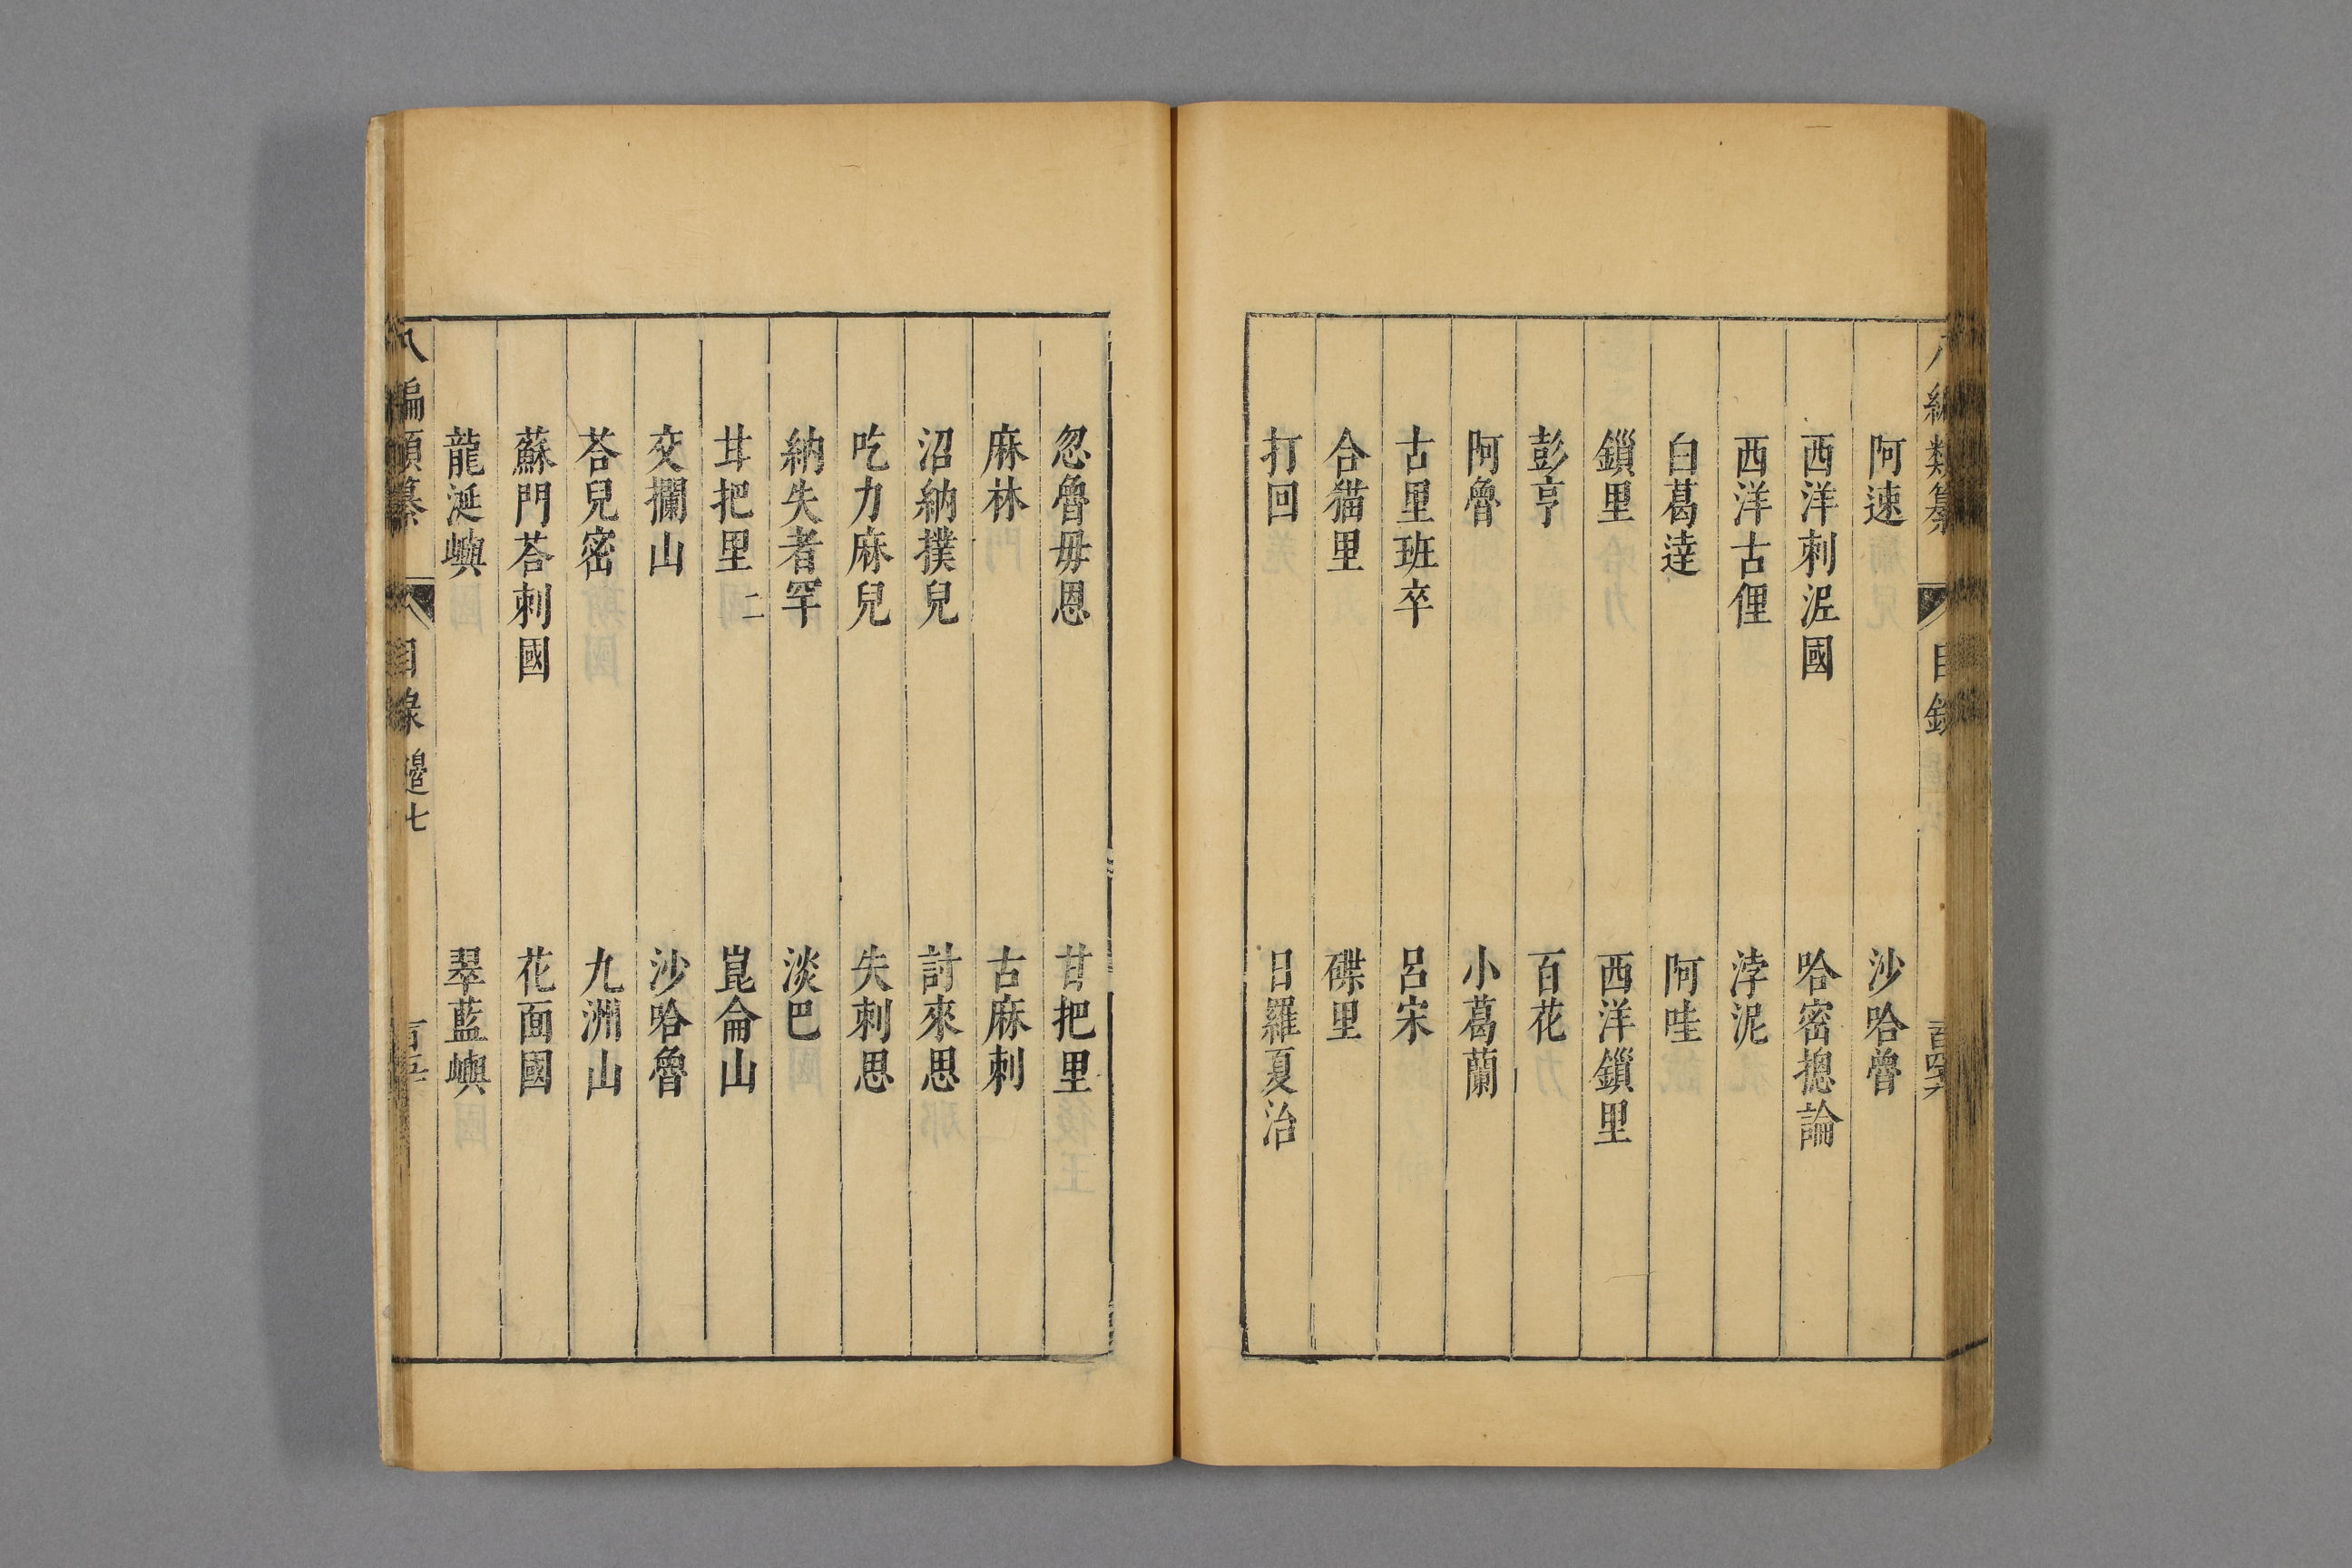 八編類纂 目錄
阿速 沙哈魯
西洋刺泥國 哈密摠論
西洋古俚 浡泥
白葛達 阿哇
鎖里 西洋鎖里
彭亨 百花
阿魯 小葛蘭
古里班卒 呂宋
合猫里 碟里
打回 日羅夏治
忽魯毋恩 甘把里
麻林 古麻刺
沼納撲兒 討來思
吃力麻兒 失刺思
納失者罕 淡巴
甘把里二 崑侖山
交攔山 沙哈魯
荅兒密 九洲山
蘇門荅刺國 花面國
龍涎嶼 翠藍嶼
八編類纂 目錄 邊七